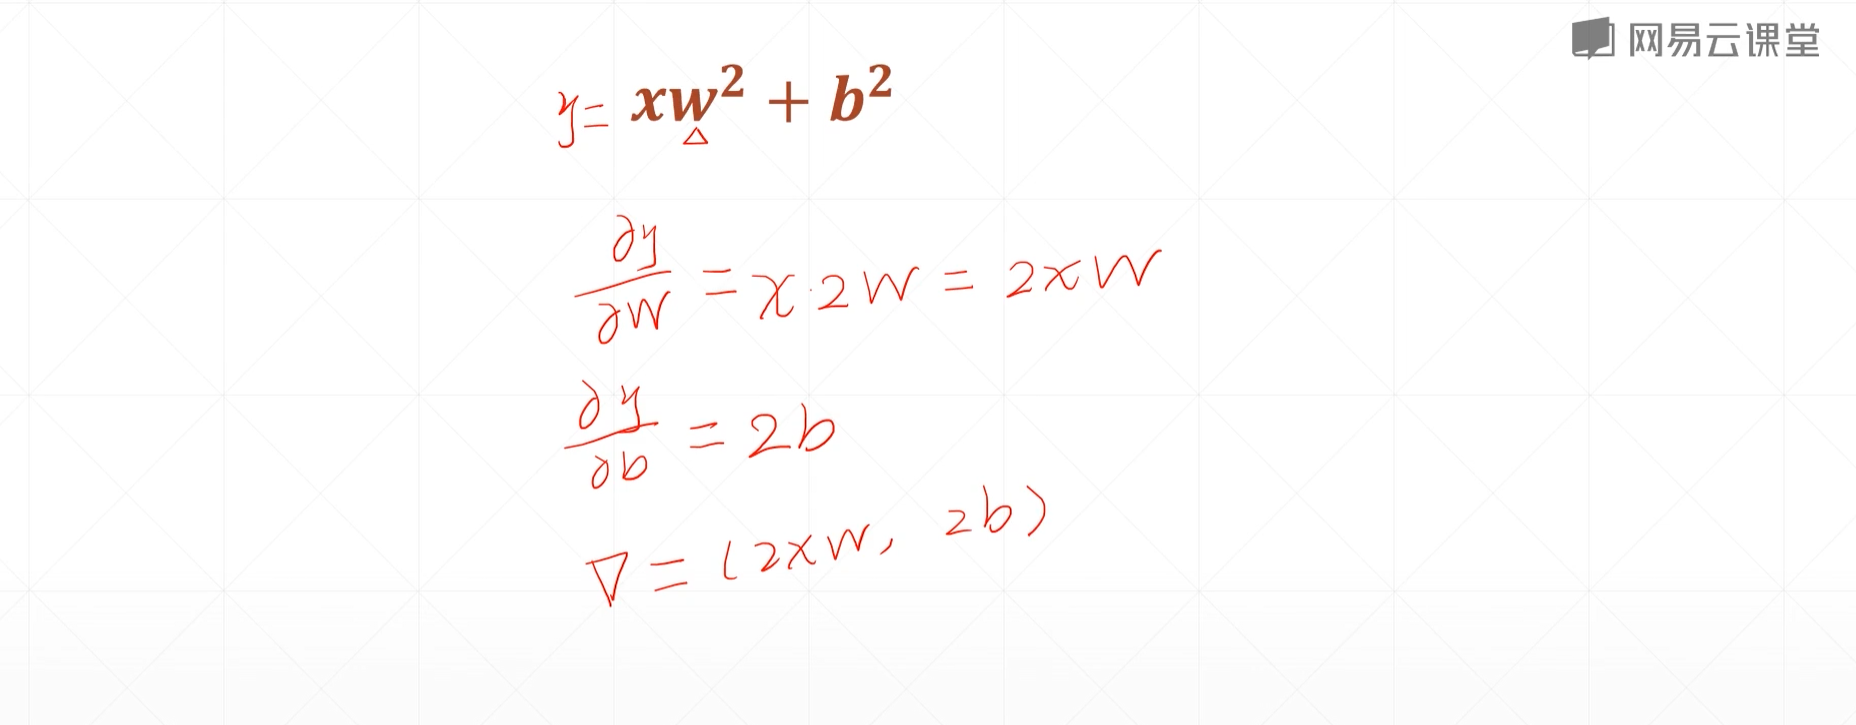 网易云课堂
y = xw² + b²
△
∂y/∂w = x·2w = 2xw
∂y/∂b = 2b
∇ = (2xw, 2b)